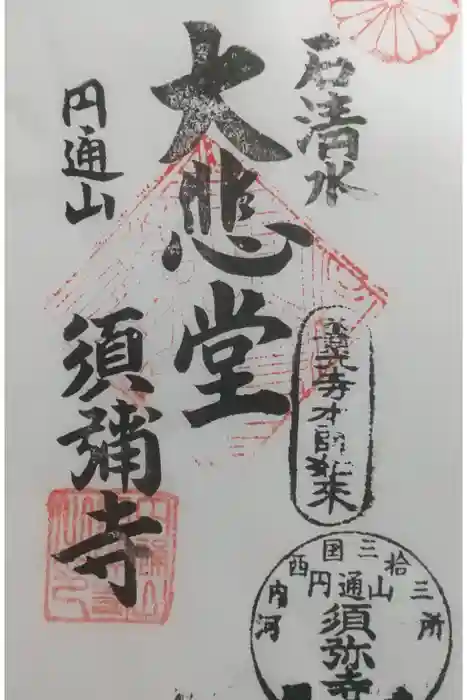 石清水
大悲堂
円通山
須彌寺
河内西国三拾三所
円通山
須弥寺